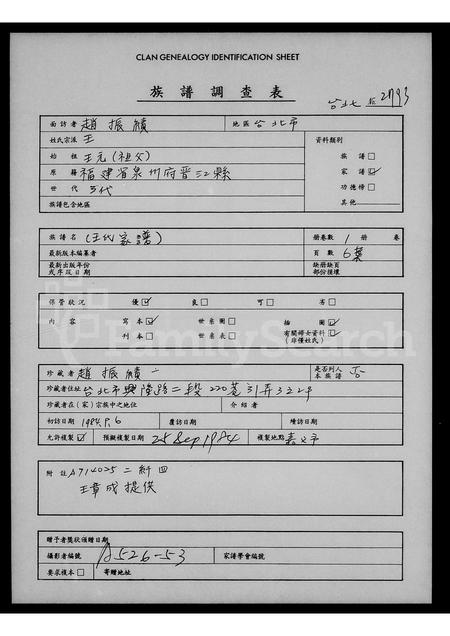 CLAN GENEALOGY IDENTIFICATION SHEET
族譜調查表
台北 B 2793
面訪者 趙振績 地區 台北市
姓氏宗派 王 資料類別
始祖 王元(祖父) 族譜□
原籍 福建省泉州府晉江縣 家譜☑
世代 五代 功德榜□
族譜包含地區 其他
族譜名 (王氏家譜) 冊卷數 1 冊 卷
最新版本編纂者 頁數 6葉
最新出版年份 缺冊缺頁
式序及日期 部份損壞
保管狀況 優☑ 良□ 可□ 劣□
內容 寫本☑ 世系圖□ 插圖☑
刊本□ 世系表□ 有關婦女資料☑
(非僅姓氏)
珍藏者 趙振績 是否列入
本族譜 否
珍藏者住址 台北市興隆路二段220巷31弄3之2号
珍藏者在(家)宗族中之地位 介紹者
初訪日期 1984.9.6 覆訪日期 續訪日期
允許複製☑ 預擬複製日期 25 Sep 1984 複製地點 嘉义市
附註 A714025 二 四
王章成提供
贈予者獎狀頒贈日期
攝影者編號 A526-53 家譜學會編號
要求複本□ 寄贈地址
FamilySearch